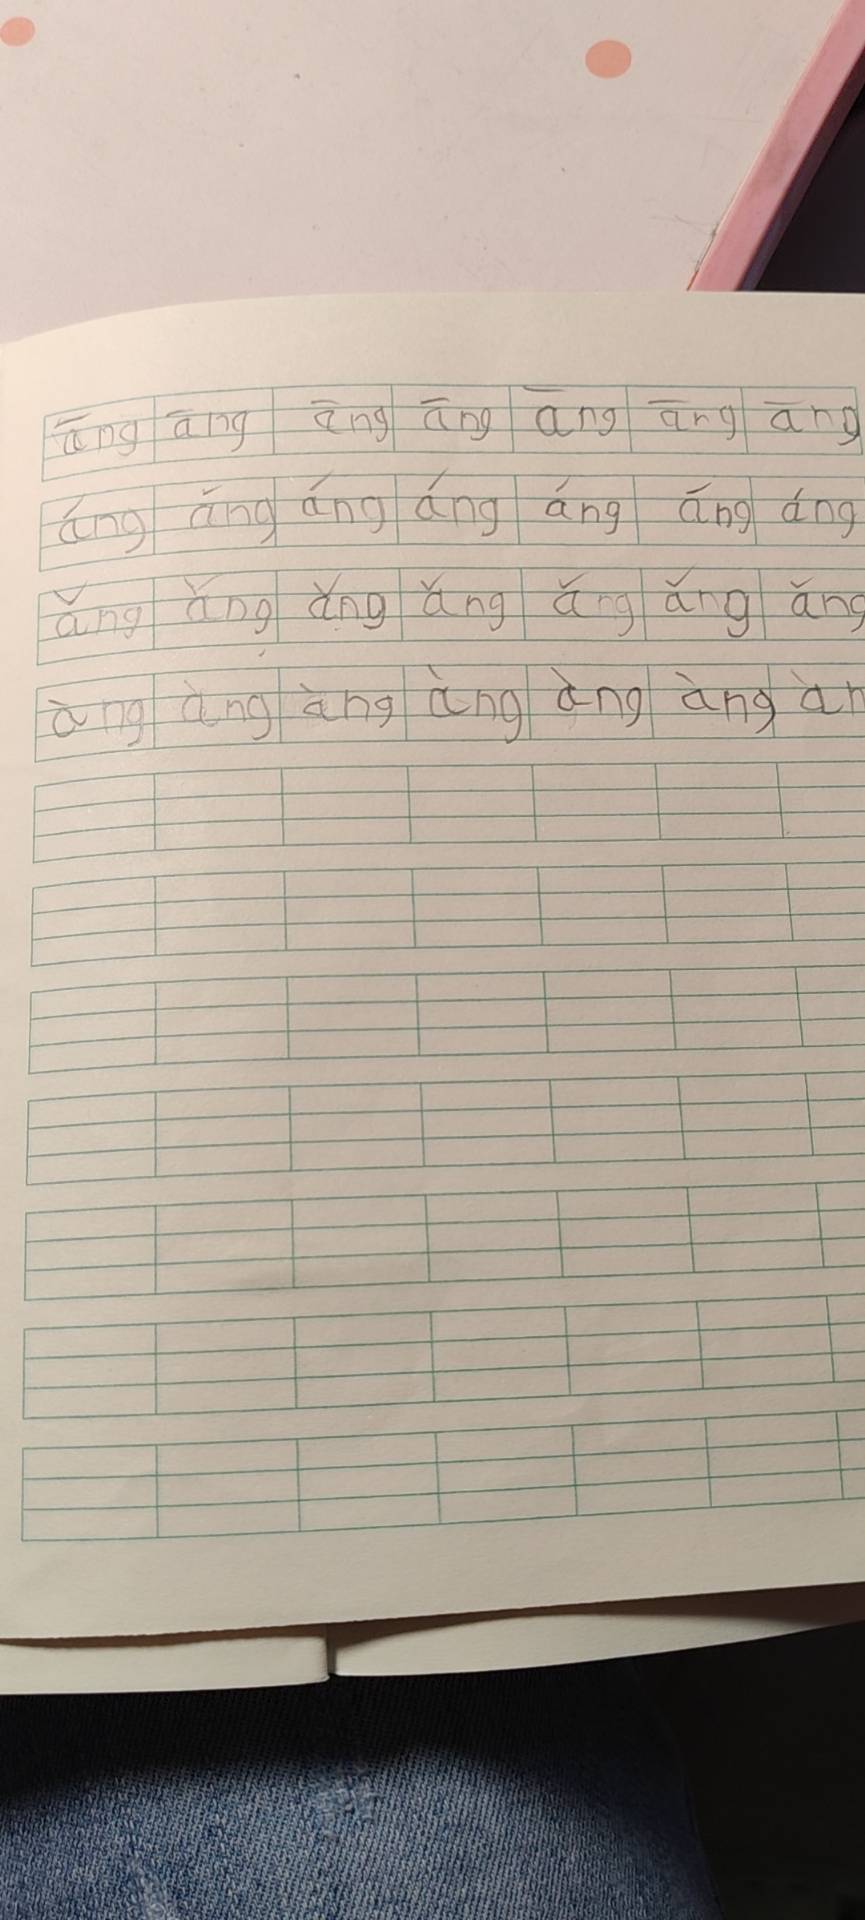 āng āng āng āng āng āng āng
áng áng áng áng áng áng áng
ǎng ǎng ǎng ǎng ǎng ǎng ǎng
àng àng àng àng àng àng àn